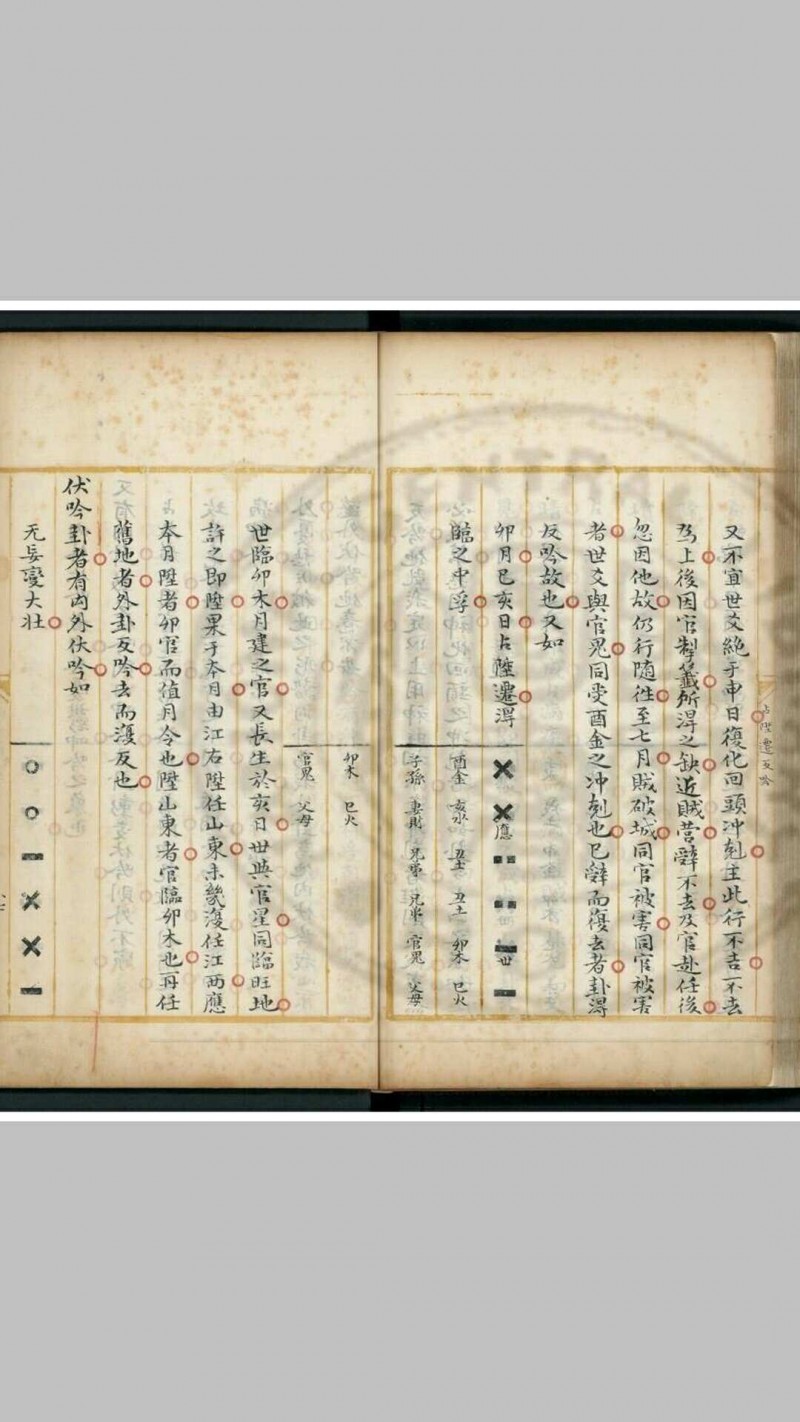 又不宜世爻絶于申日復化回頭冲剋主此行不吉不去
為上後因官掣籤所淂之缺近賊营辭不去及官赴任後
忽因他故仍行随徃至七月賊破城同官被害同官被害
者世爻與官鬼同受酉金之冲剋也已辭而復去者卦淂
反吟故也又如
卯月巳亥日占陞遷淂
臨之中孚
應
世
酉金 亥水 丑土 丑土 卯木 巳火
子孫 妻財 兄弟 兄弟 官鬼 父母
卯木 巳火
官鬼 父母
世臨卯木月建之官又長生於亥日世與官星同臨旺地
許之即陞果于本月由江右陞任山東未幾復任江西應
本月陞者卯官而值月令也陞山東者官臨卯木也再任
舊地者外卦反吟去而復反也
伏吟卦者有内外伏吟如
无妄變大壯
占陞遷反吟